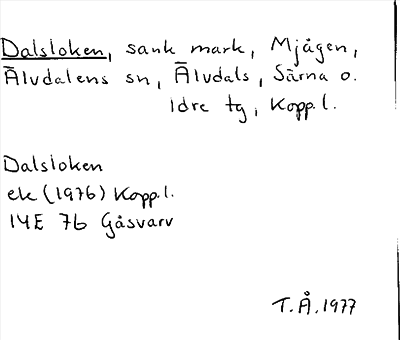 Dalsloken, sank mark, Mjågen,
Älvdalens sn, Älvdals, Särna o.
Idre tg, Kopp.l.
Dalsloken
ek (1976) Kopp.l.
14E 7b Gåsvarv
T.Å. 1977